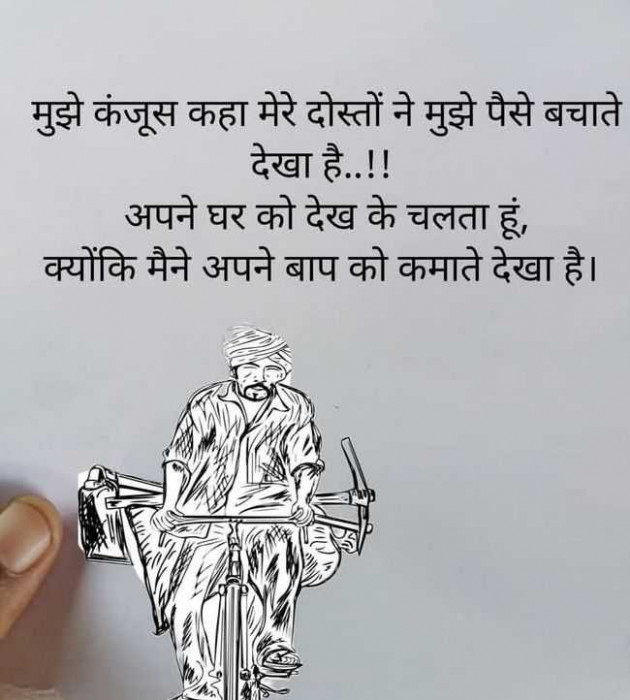 मुझे कंजूस कहा मेरे दोस्तों ने मुझे पैसे बचाते
देखा है..!!
अपने घर को देख के चलता हूं,
क्योंकि मैने अपने बाप को कमाते देखा है।